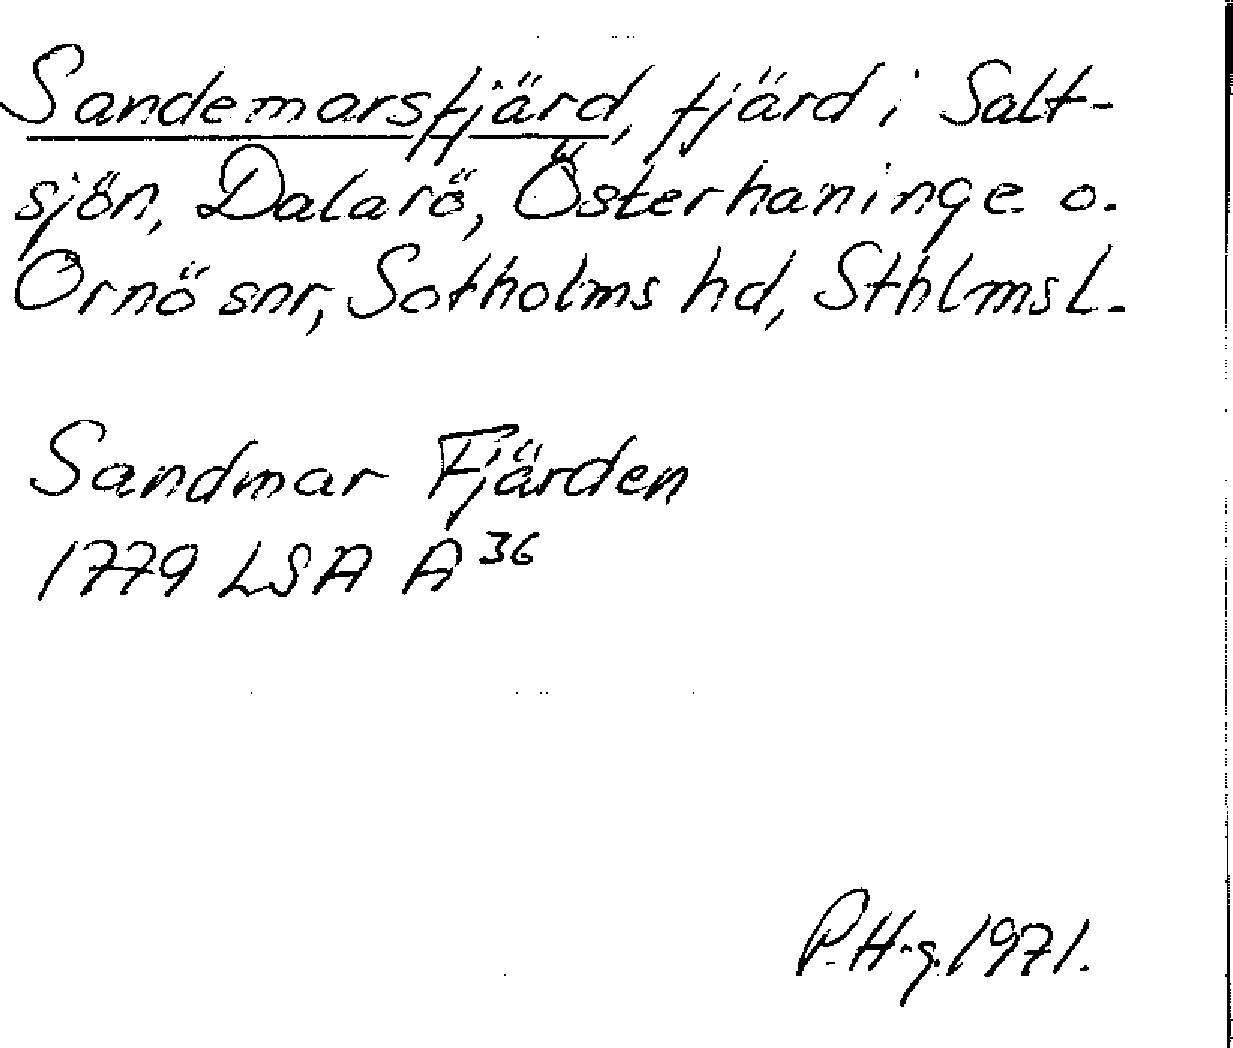 Sandemarsfjärd, fjärd i Salt-
sjön, Dalarö, Österhaninge o.
Ornö snr, Sotholms hd, Sthlms L.
Sandmar Fjärden
1779 LSA A³⁶
P.H-g. 1971.